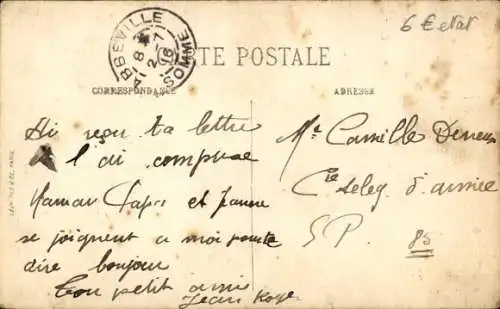 6 € etat
ABBEVILLE
8
2-7
16
SOMME
CARTE POSTALE
CORRESPONDANCE
ADRESSE
Ai reçu ta lettre
l'ai comprise
Maman et Jeanne
se joignent a moi pour te
dire bonjour
Ton petit ami
Jean
Mr Camille
Cie teleg d'armée
S P. 85